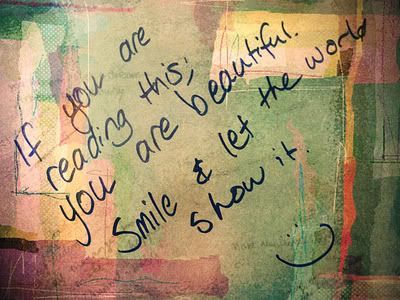 If you are
reading this;
you are beautiful.
Smile & let the world
show it.